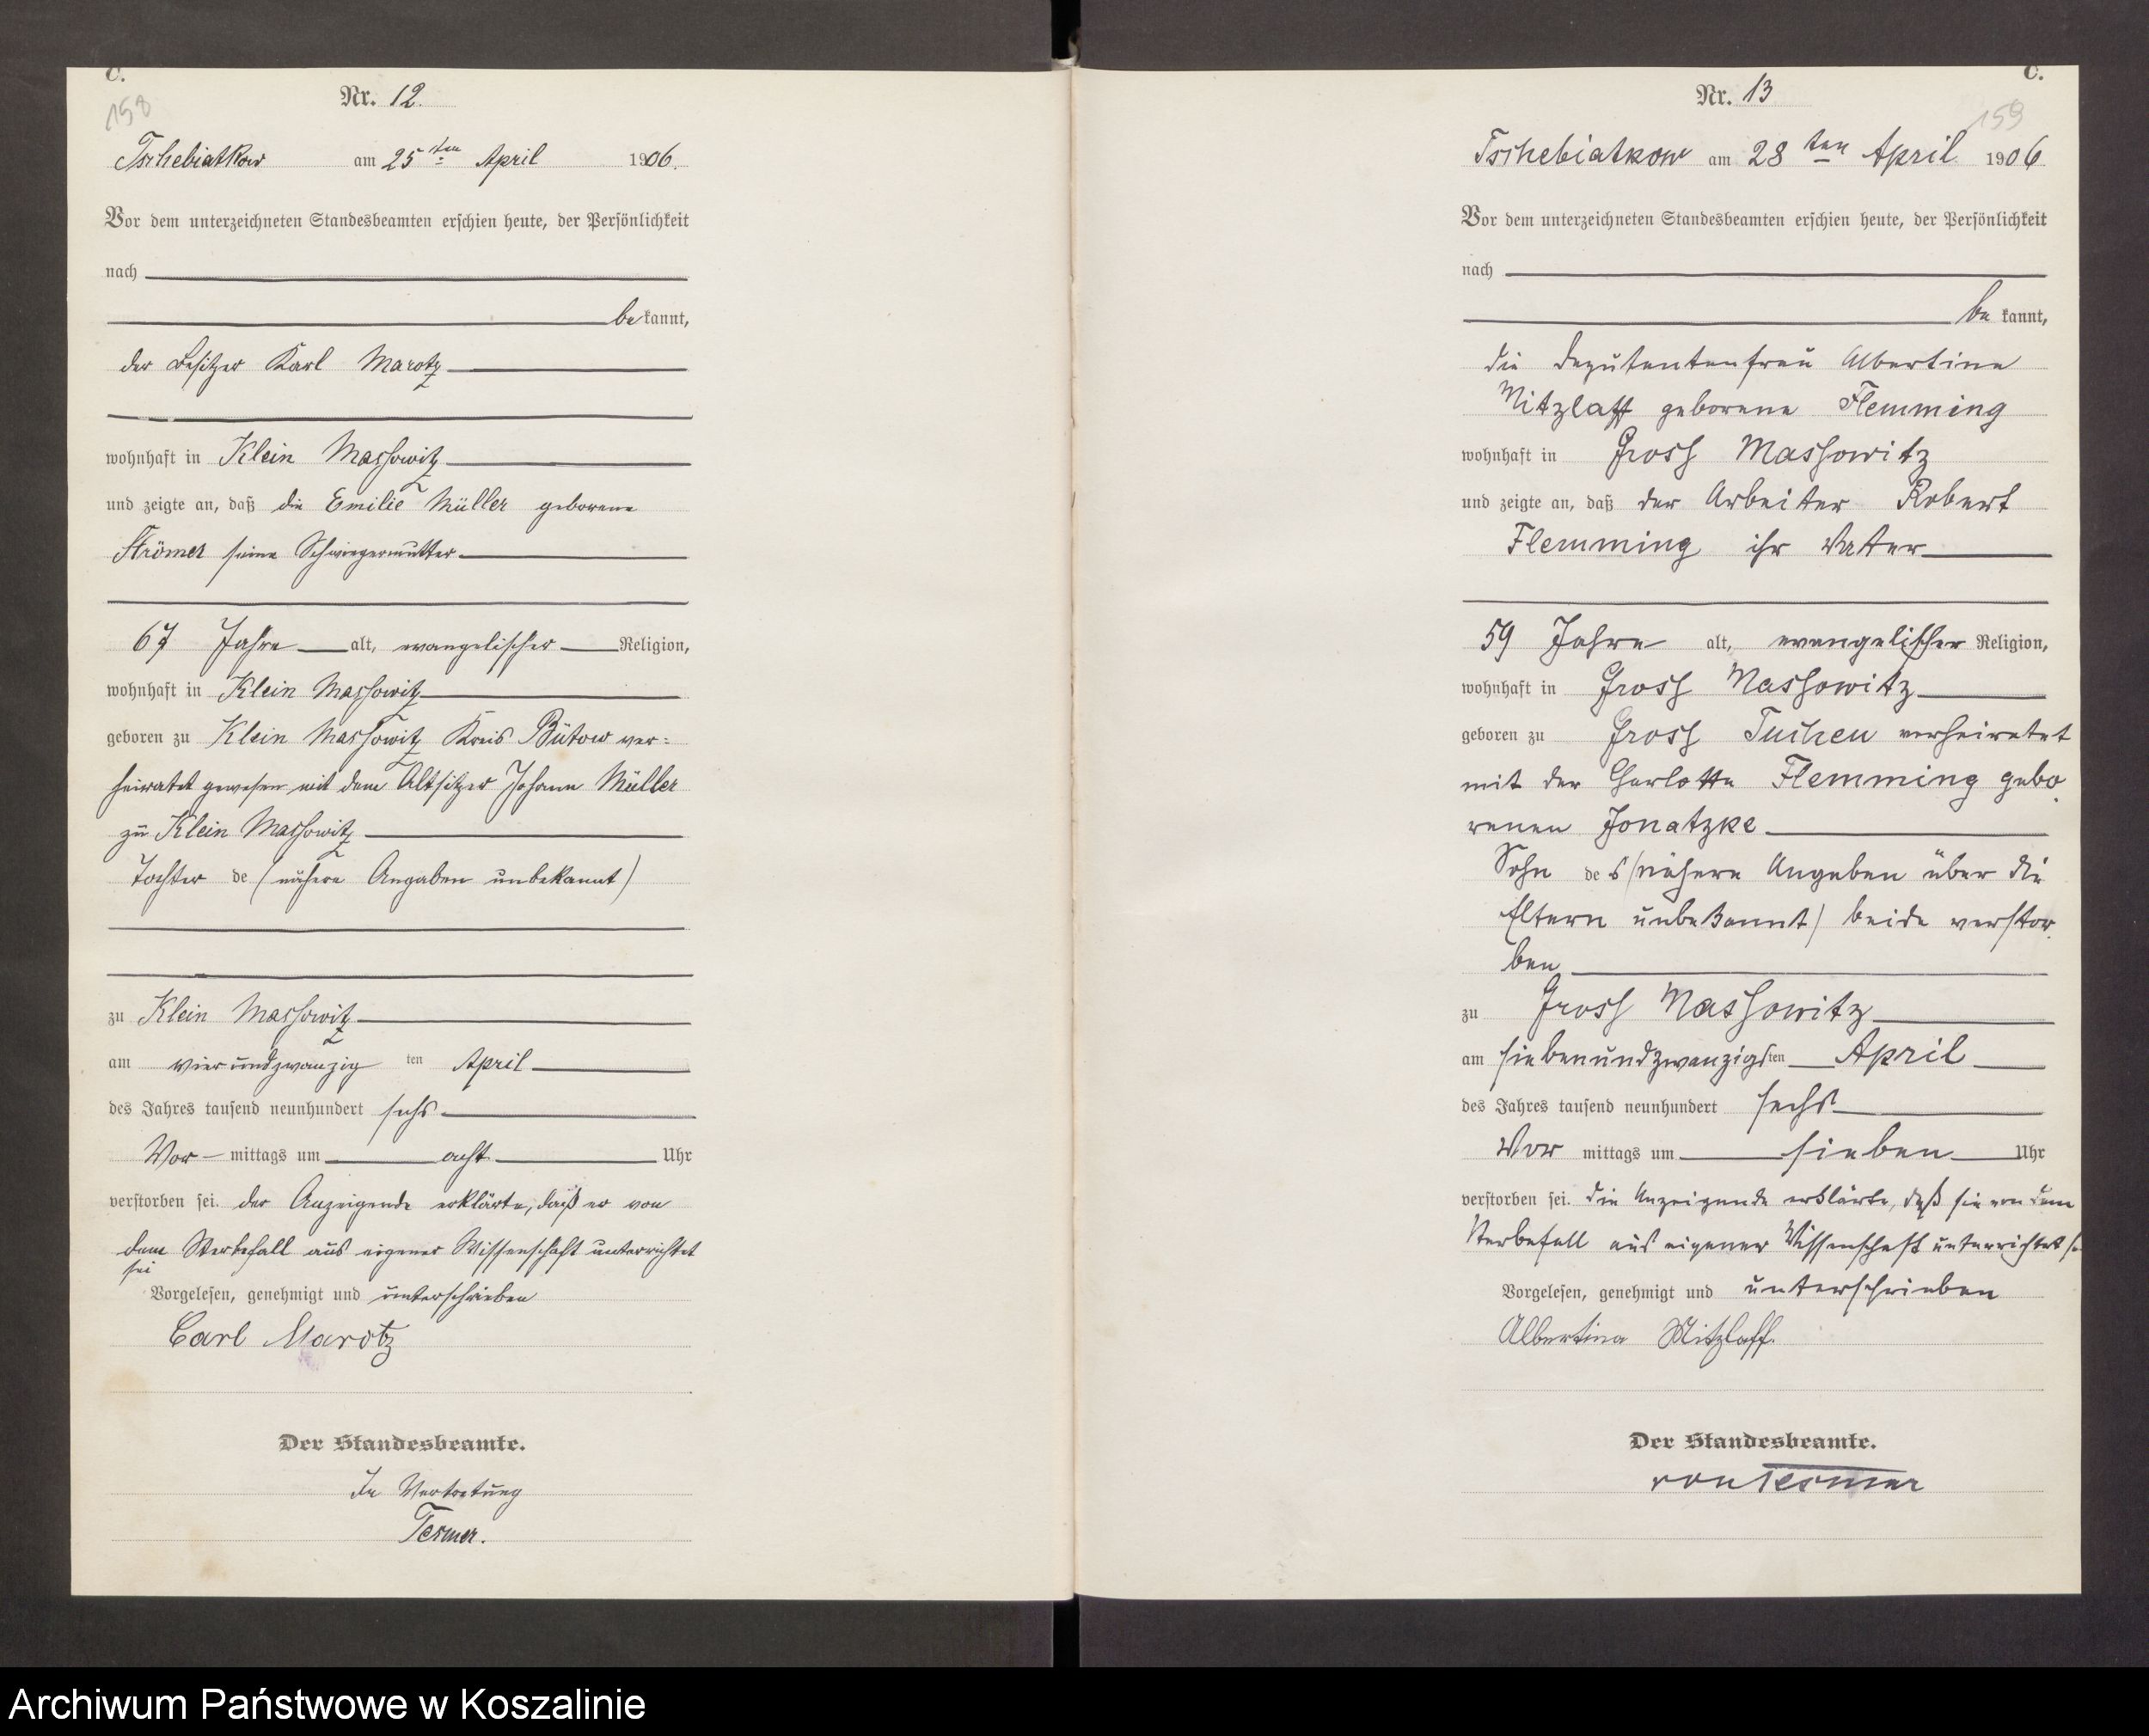 C.
158
Nr. 12.
Tschebiatkow am 25ten April 1906.
Vor dem unterzeichneten Standesbeamten erschien heute, der Persönlichkeit
nach
bekannt,
der Besitzer Karl Marotz
wohnhaft in Klein Massowitz
und zeigte an, daß die Emilie Müller geborene
Strömer seine Schwiegermutter
67 Jahre alt, evangelischer Religion,
wohnhaft in Klein Massowitz
geboren zu Klein Massowitz Kreis Bütow ver=
heiratet gewesen mit dem Altsitzer Johann Müller
zu Klein Massowitz
Tochter de (nähere Angaben unbekannt)
zu Klein Massowitz
am vierundzwanzig ten April
des Jahres tausend neunhundert sechs
Vor-mittags um acht Uhr
verstorben sei. der Anzeigende erklärte, daß er von
dem Sterbefall aus eigener Wissenschaft unterrichtet
sei
Vorgelesen, genehmigt und unterschrieben
Carl Marotz
Der Standesbeamte.
In Vertretung
Tesmer.
C.
159
Nr. 13
Tschebiatkow am 28ten April 1906
Vor dem unterzeichneten Standesbeamten erschien heute, der Persönlichkeit
nach
be kannt,
die Deputentenfrau Albertine
Mitzlaff geborene Flemming
wohnhaft in Gross Massowitz
und zeigte an, daß der Arbeiter Robert
Flemming ihr Vater
59 Jahre alt, evangelischer Religion,
wohnhaft in Gross Massowitz
geboren zu Gross Tuchen verheiratet
mit der Charlotte Flemming gebo
renen Jonatzke
Sohn des (nähere Angaben über die
Eltern unbekannt) beide verstor
ben
zu Gross Massowitz
am siebenundzwanzigsten April
des Jahres tausend neunhundert sechs
Vor mittags um sieben Uhr
verstorben sei. Die Anzeigende erklärte, daß sie von dem
Sterbefall aus eigener Wissenschaft unterrichtet
Vorgelesen, genehmigt und unterschrieben
Albertine Mitzlaff.
Der Standesbeamte.
von Tesmar
Archiwum Państwowe w Koszalinie